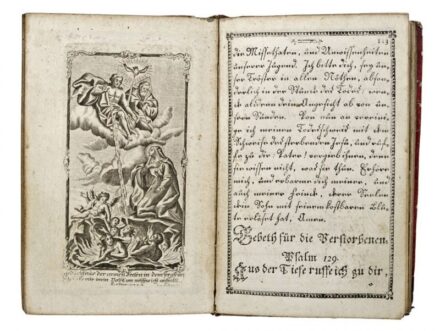 die Missethaten, und Unwissenheiten
unserer Jugend. Ich bitte dich, sey un-
ser Tröster in allen Nöthen, abson-
derlich in der Stunde des Todes: wend
ab alsdann dein Angesicht ab von un-
seren Sünden. Von nun an vereini-
ge ich meinen Todtschweiß mit dem
Schweiße des sterbenden Jesu, und ruf-
fe zu dir: Vater! vergieb ihnen, denn
sie wissen nicht, was sie thun. Erhöre
mich, und erbarme dich meiner, und
auch meiner Feinde, deren Seelen
dein Sohn mit seinem kostbaren Blu-
te erlöset hat. Amen.
Gebeth für die Verstorbenen.
Psalm 129.
Aus der Tiefe ruffe ich zu dir,
der armen Seelen in dem